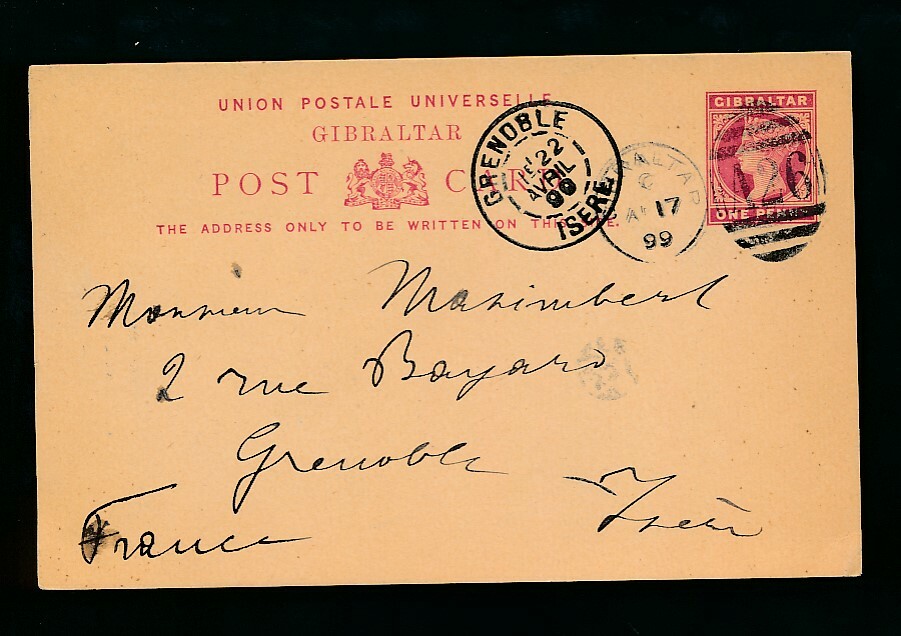 UNION POSTALE UNIVERSELLE
GIBRALTAR
POST CARD
THE ADDRESS ONLY TO BE WRITTEN ON THIS SIDE.
GRENOBLE
22
AVRIL
99
ISERE
GIBRALTAR
C
AP 17
99
GIBRALTAR
A26
ONE PENNY
Monsieur Maximbert
2 rue Bayard
Grenoble
Isère
France